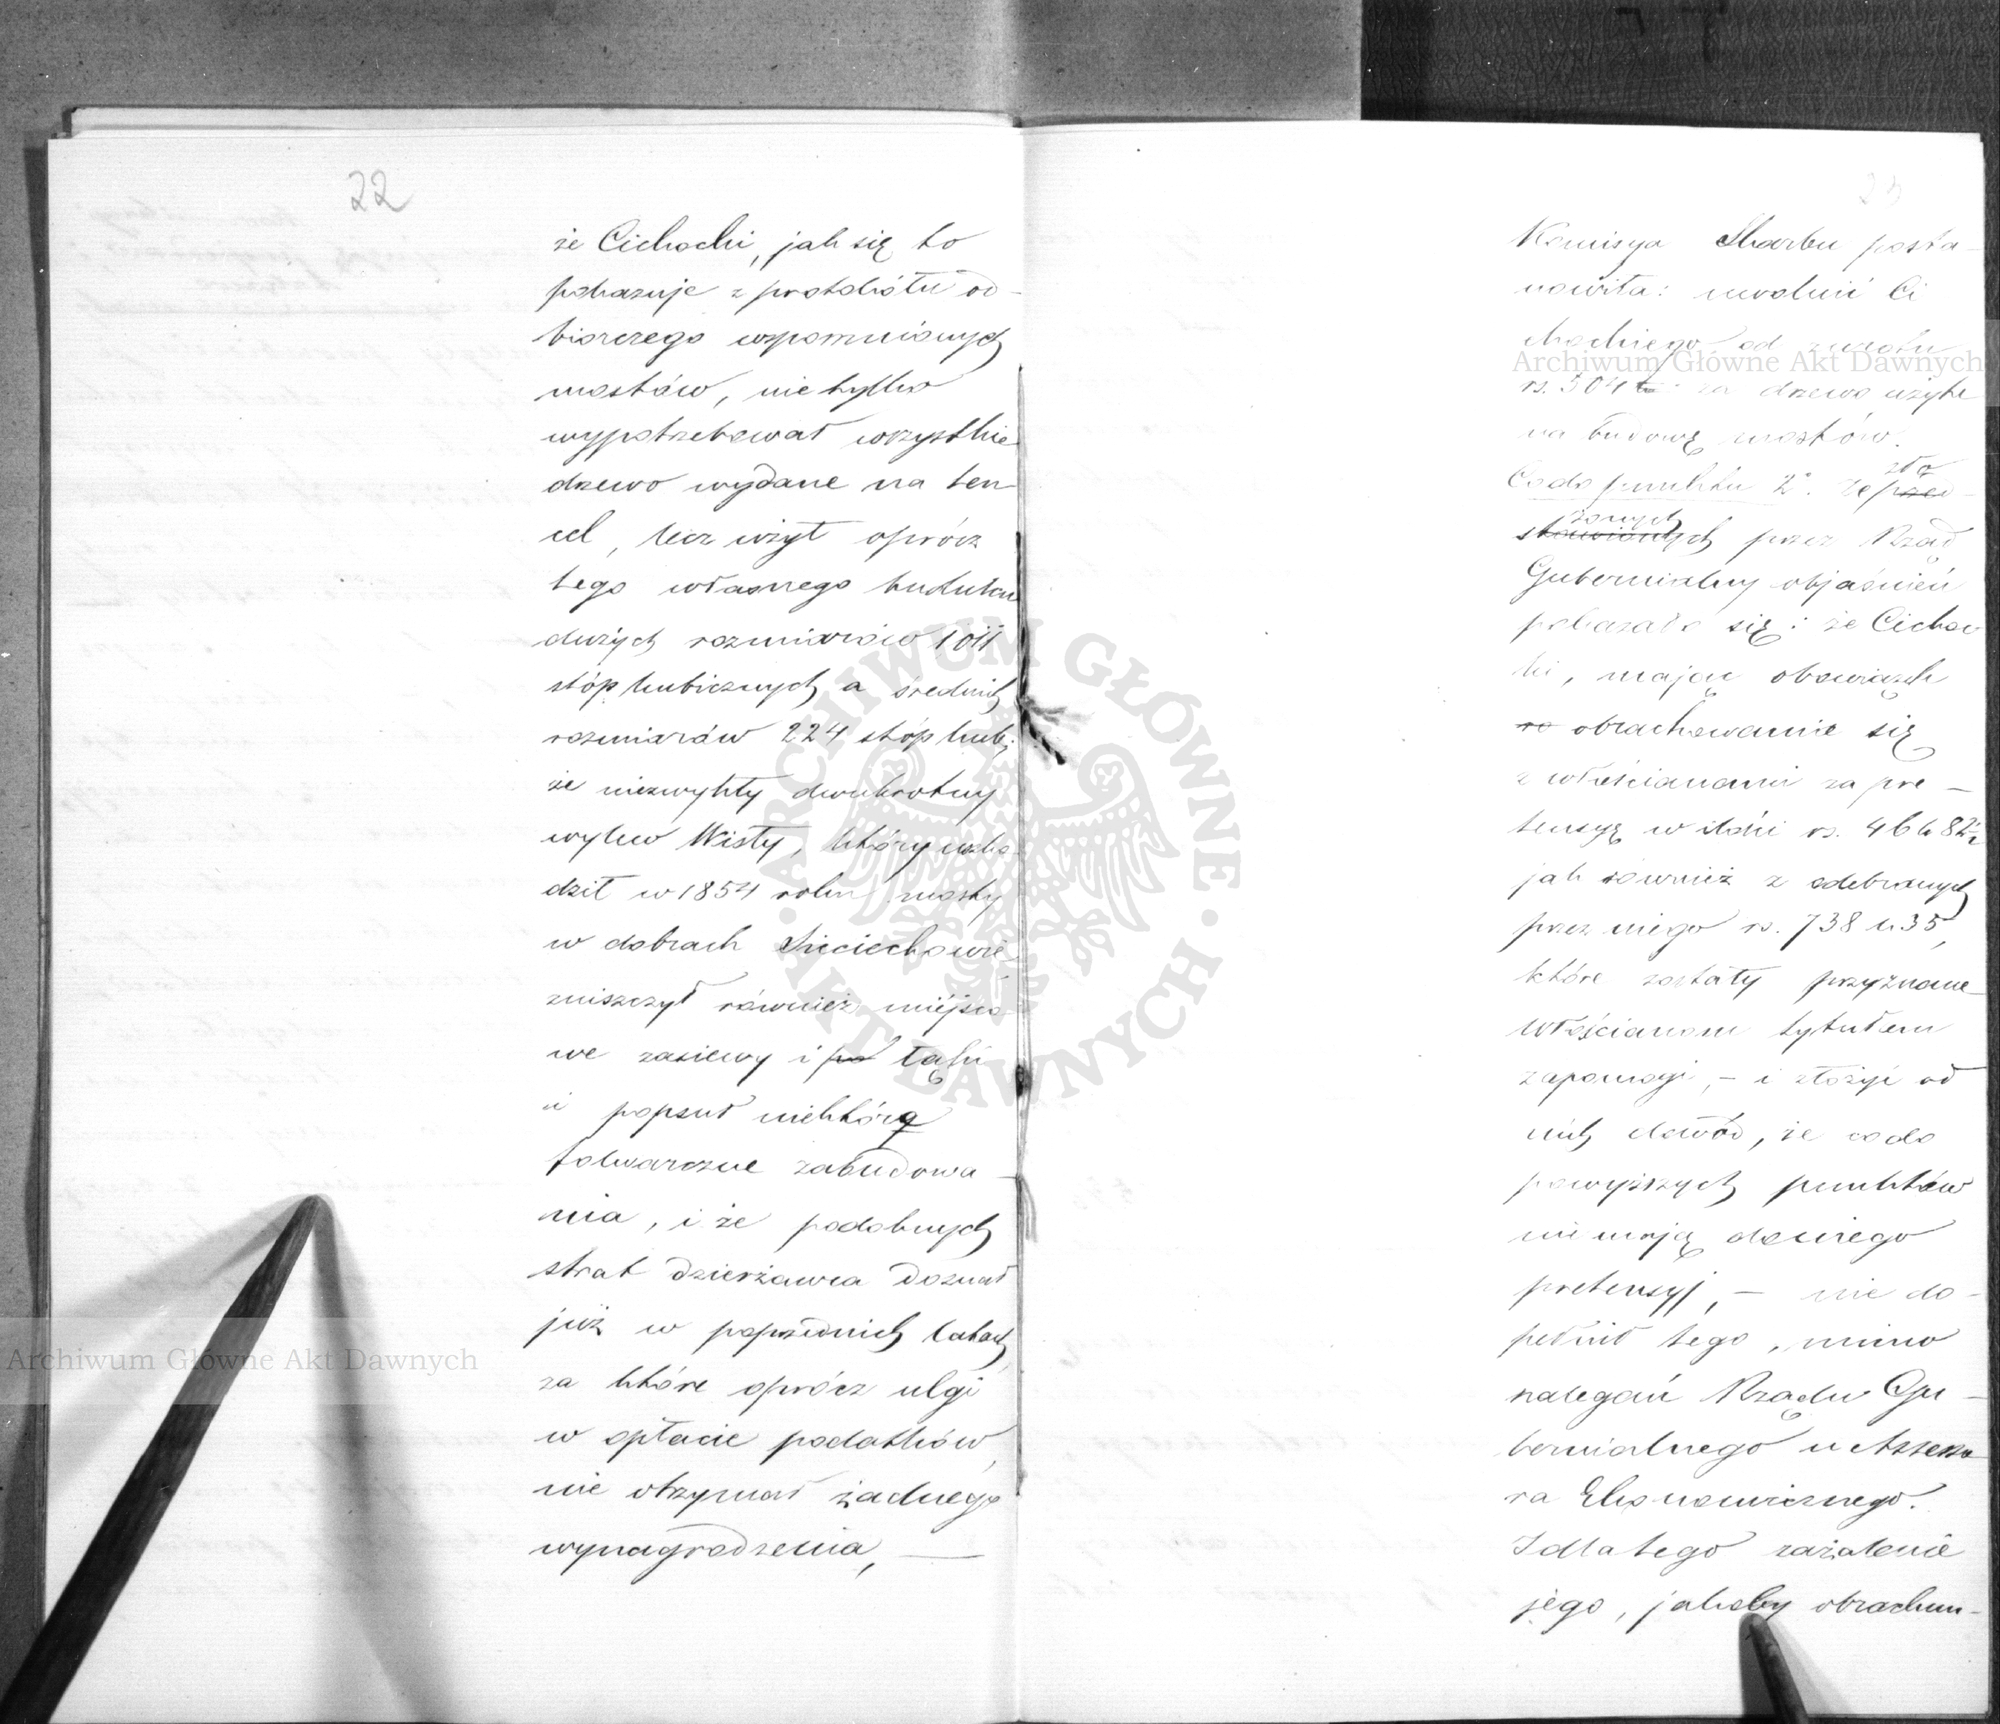 22
że Cichocki, jak się to
pokazuje z protokółu od-
biorczego wspomnionych
mostów, nie tylko
wypotrzebował wszystkie
drzewo wydane na ten
cel, lecz użył oprócz
tego własnego budulcu
dużych rozmiarów 1011
stóp kubicznych a średnich
rozmiarów 224 stóp kub;
że niezwykły dwukrotny
wylew Wisły, który uszko-
dził w 1854 roku mosty
w dobrach Sieciechowie
zniszczył również miejsco-
we zasiewy i łąki
i popsuł niektóre
folwarczne zabudowa-
nia, i że podobnych
strat dzierżawca doznał
już w poprzednich latach
za które oprócz ulgi
w opłacie podatków,
nie otrzymał żadnego
wynagrodzenia, —
23
Komisya Skarbu posta-
nowiła: uwolnić Ci
chockiego od zwrotu
rs. 304 za drzewo użyte
na budowę mostów.
Co do punktu 2°. Ze przed-
zło
stawionych przez Rząd
żonych
Gubernialny objaśnień
pokazało się: że Cichoc
ki, mając obowiązek
ro obrachowanie się
z włościanami za pre-
tensyę w ilości rs. 46 k 82½
jak również z odebranych
przez niego rs. 738 k 35,
które zostały przyznane
włościanom tytułem
zapomogi, — i złożyć od
nich dowód, że co do
powyższych punktów
nie mają do niego
pretensyj, — nie do-
pełnił tego, mimo
nalegań Rządu Gu-
bernialnego u Asseso-
ra Ekonomicznego.
I dla tego zażalenie
jego, jakoby obrachun-
Archiwum Główne Akt Dawnych
Archiwum Główne Akt Dawnych
ARCHIWUM GŁÓWNE · AKT DAWNYCH ·